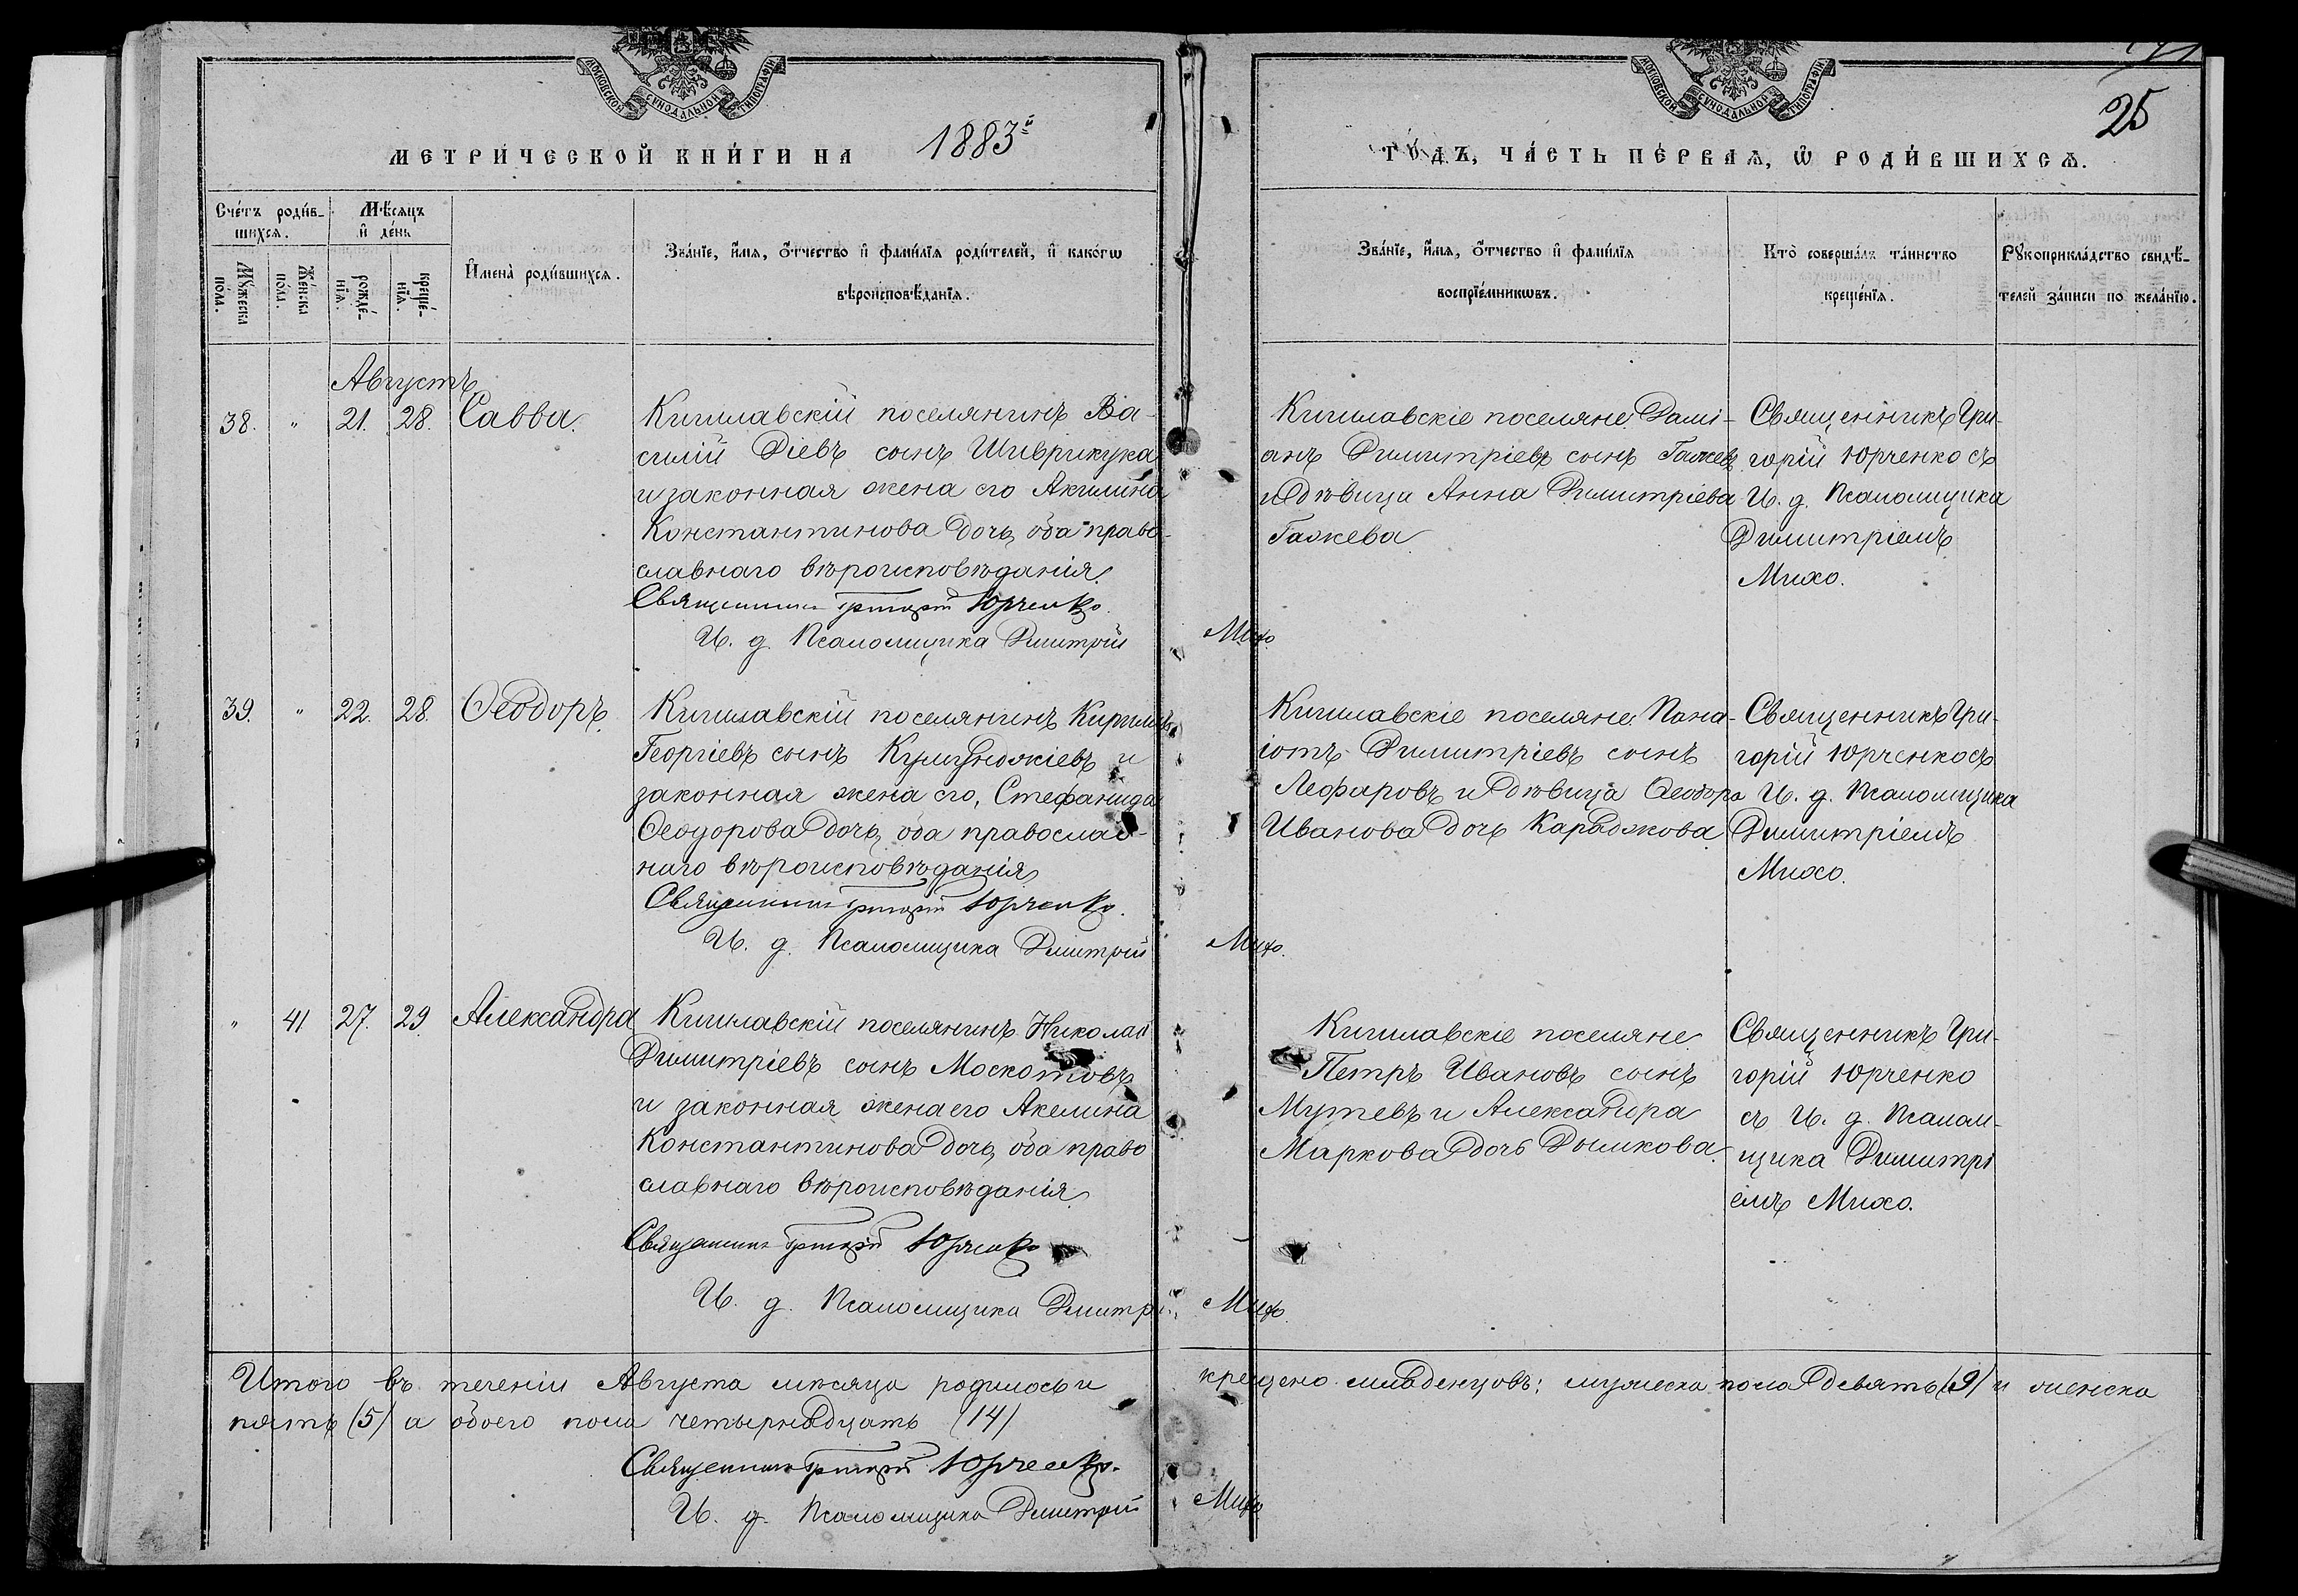 МОСКОВСКОЙ СѴНОДАЛЬНОЙ ТИПОГРАФІИ
МОСКОВСКОЙ СѴНОДАЛЬНОЙ ТИПОГРАФІИ
25
МЕТРИ́ЧЕСКОЙ КНИ́ГИ НА 1883й
ГО́ДЪ, ЧА́СТЬ ПЕ́РВАѦ, Ѡ҆ РОДИ́ВШИХСѦ.
Сче́тъ роди́в-
шихсѧ.
Мꙋ́жеска по́ла.
Же́нска по́ла.
Мѣ́сѧцъ
и҆ де́нь
рожде́-нїѧ.
креще́-нїѧ.
И҆мена̀ роди́вшихсѧ.
Зва́нїе, и҆́мѧ, ѻ҆́тчество и҆ фамѝлїѧ роди́телей, и҆ како́гѡ
вѣроисповѣ́данїѧ.
Зва́нїе, и҆́мѧ, ѻ҆́тчество и҆ фамѝлїѧ
воспрїе́мникѡвъ.
Кто̀ соверша́лъ та́инство
креще́нїѧ.
Рꙋкоприкла́дство свидѣ́-
телей за́писи по жела́нїю.
Августъ
38. " 21. 28. Савва.
Кишлавскій поселянинъ Ва-
силій Діевъ сынъ Шиврикука
и законная жена его Акилина
Константинова дочь, оба право-
славнаго вѣроисповѣданія.
Священникъ Григорій Юрченко.
И. д. Псаломщика Димитрій Михо.
Кишлавскіе поселяне: Дамі-
анъ Димитріевъ сынъ Гажевъ
и дѣвица Анна Димитріева
Гажева
Священникъ Гри-
горій Юрченко съ
И. д. Псаломщика
Димитріемъ
Михо.
39. " 22. 28. Ѳеодоръ.
Кишлавскій поселянинъ Кириллъ
Георгіевъ сынъ Куюнджіевъ и
законная жена его, Стефанида
Ѳеодорова дочь, оба православ-
наго вѣроисповѣданія
Священникъ Григорій Юрченко.
И. д. Псаломщика Димитрій Михо.
Кишлавскіе поселяне: Пана-
іотъ Димитріевъ сынъ
Лефаровъ и дѣвица Ѳеодора
Иванова дочь Караджова
Священникъ Гри-
горій Юрченко съ
И. д. Псаломщика
Димитріемъ
Михо.
" 41 27. 29 Александра
Кишлавскій поселянинъ Николай
Димитріевъ сынъ Москотовъ
и законная жена его Акелина
Константинова дочь, оба право
славнаго вѣроисповѣданія
Священникъ Григорій Юрченко
И. д. Псаломщика Димитрій Михо
Кишлавскіе поселяне
Петръ Ивановъ сынъ
Мутевъ и Александра
Маркова дочь Дымкова.
Священникъ Гри-
горій Юрченко
съ И. д. Псалом-
щика Димитрі
емъ Михо.
Итого въ теченіи Августа мѣсяца родилось и крещено младенцовъ: мужеска пола девять (9) и женска
пять (5) а обоего пола четырнадцать (14)
Священникъ Григорій Юрченко.
И. д. Псаломщика Димитрій Михо